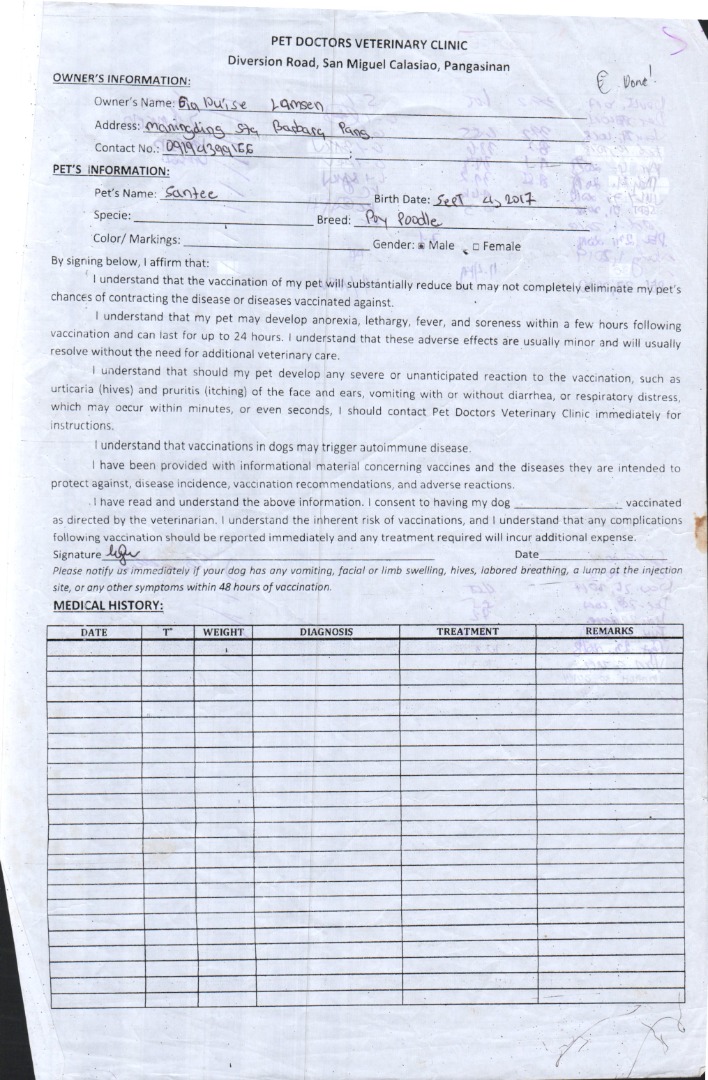 PET DOCTORS VETERINARY CLINIC
Diversion Road, San Miguel Calasiao, Pangasinan
Done!
OWNER'S INFORMATION:
Owner's Name: Lamsen
Address: maningding Sta Barbara Pang.
Contact No.:
PET'S INFORMATION:
Pet's Name: Santee Birth Date: Sept 4, 2017
Specie: Breed: Poodle
Color/ Markings: Gender: Male Female
By signing below, I affirm that:
I understand that the vaccination of my pet will substantially reduce but may not completely eliminate my pet's
chances of contracting the disease or diseases vaccinated against.
I understand that my pet may develop anorexia, lethargy, fever, and soreness within a few hours following
vaccination and can last for up to 24 hours. I understand that these adverse effects are usually minor and will usually
resolve without the need for additional veterinary care.
I understand that should my pet develop any severe or unanticipated reaction to the vaccination, such as
urticaria (hives) and pruritis (itching) of the face and ears, vomiting with or without diarrhea, or respiratory distress,
which may occur within minutes, or even seconds, I should contact Pet Doctors Veterinary Clinic immediately for
instructions.
I understand that vaccinations in dogs may trigger autoimmune disease.
I have been provided with informational material concerning vaccines and the diseases they are intended to
protect against, disease incidence, vaccination recommendations, and adverse reactions.
I have read and understand the above information. I consent to having my dog vaccinated
as directed by the veterinarian. I understand the inherent risk of vaccinations, and I understand that any complications
following vaccination should be reported immediately and any treatment required will incur additional expense.
Signature Date
Please notify us immediately if your dog has any vomiting, facial or limb swelling, hives, labored breathing, a lump at the injection
site, or any other symptoms within 48 hours of vaccination.
MEDICAL HISTORY:
DATE T° WEIGHT DIAGNOSIS TREATMENT REMARKS